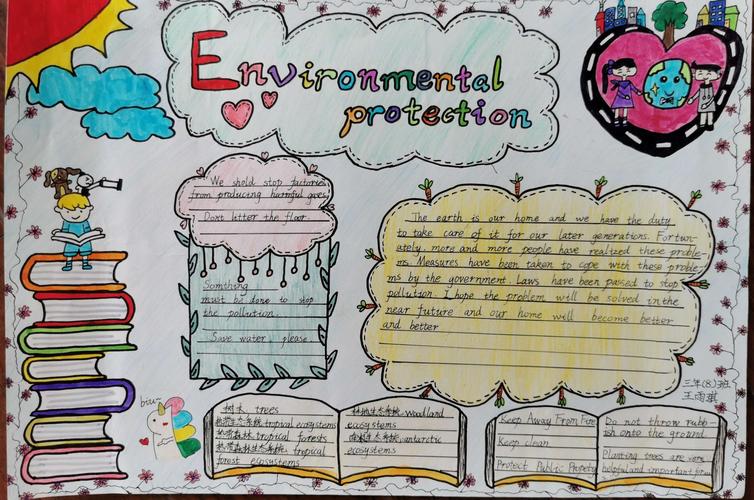 Environmental
protection
We shold stop factories
from producing harmful goes
Dont litter the floor.
Somthing
must be done to stop
the pollution.
Save water please.
The earth is our home and we have the duty
to take care of it for our later generations. Fortun-
ately, more and more people have realized these proble-
ms. Measures have been taken to cope with these proble-
ms by the government. Laws have been passed to stop
pollution. I hope the problem will be solved in the
near future and our home will become better
and better
三年(8)班
王雨琪
biu~
树木 trees
热带生态系统 tropical ecosystems
热带森林 tropical forests
热带森林生态系统 tropical
forest ecosystems
林地生态系统 woodland
ecosystems
生态系统 antarctic
ecosystems
Keep Away From Fire
Keep clean
Protect Public Property
Do not throw rubb-
ish onto the ground.
Planting trees are very
helpful and important for us